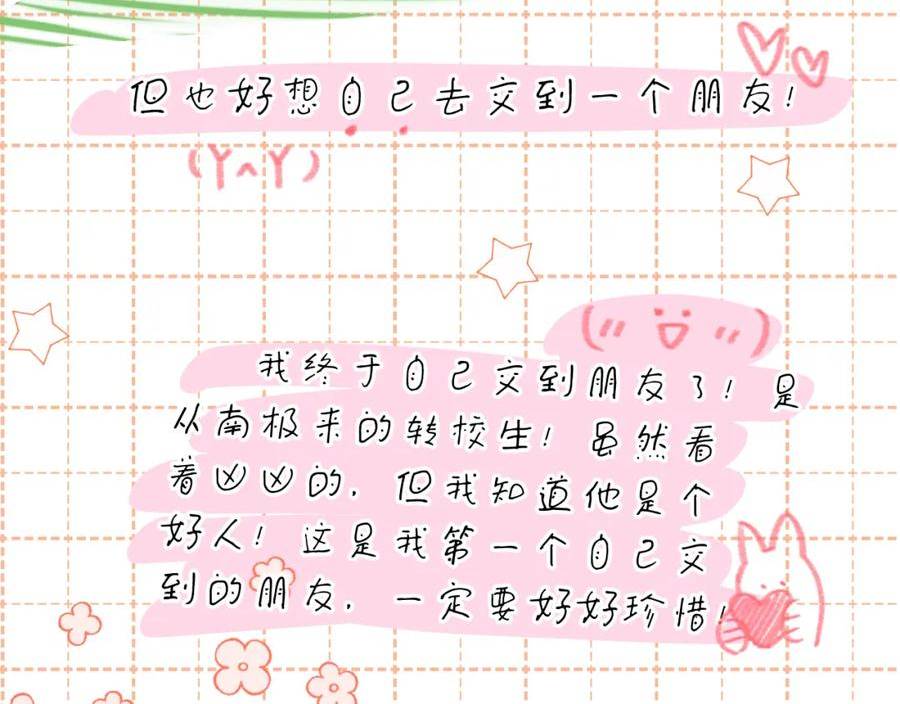 但也好想自己去交到一个朋友!
(Y^Y)
我终于自己交到朋友了! 是
从南极来的转校生! 虽然看
着凶凶的, 但我知道他是个
好人! 这是我第一个自己交
到的朋友, 一定要好好珍惜!